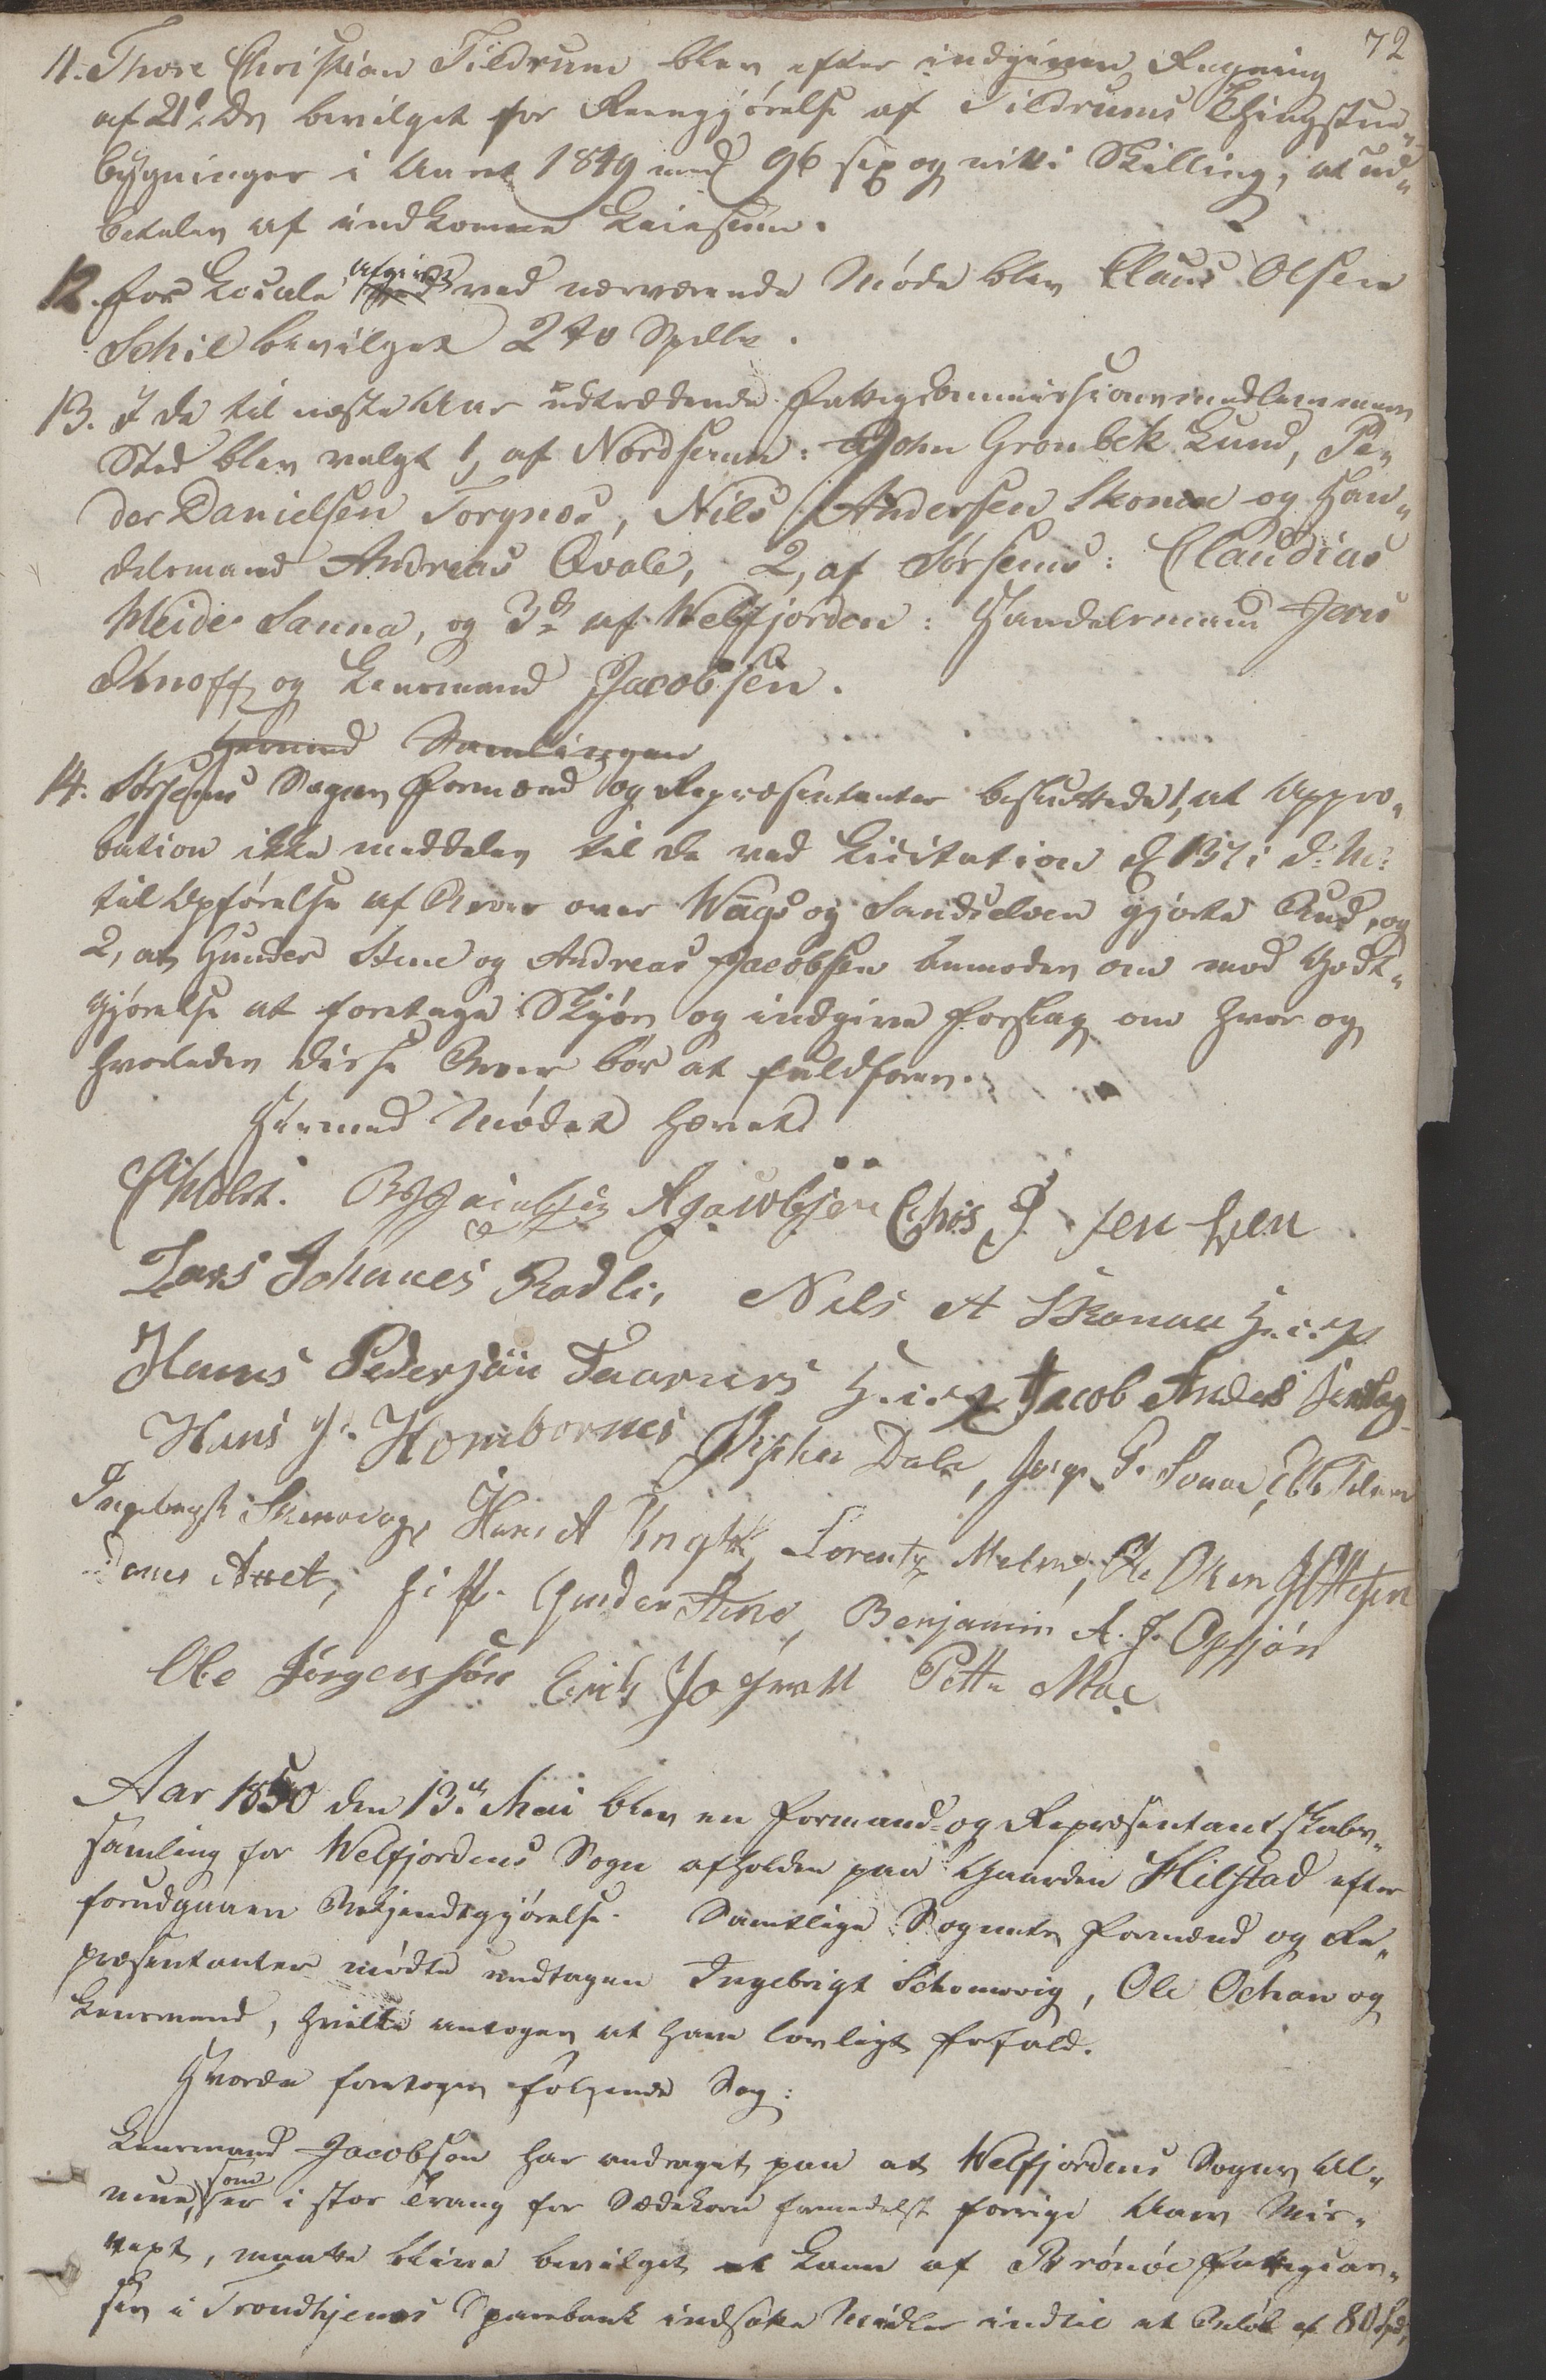 72
11. Thore Christian Tildrum blev efter indgiven Regning
af 21 bevilget for Reengjørelse af Tildrums Thingstue„
bygninger i Aaret 1849 med 96 sex og nitti Skilling, at ud„
betales af indkomne Leiesum.
12. For Locale afgivet ved nærværende Møde blev Claus Olsen
Schil bevilget 2 Spdlr.
13. I de til næste Aar udtrædende Fattigcommissionsmedlemmers
Sted blev valgt 1, af Nordsemn: John Grønbek Lund, Pe„
der Danielsen Torgnes, Nils Andersen Skomo og Han„
delsmand Andreas Qvale, 2, af Sørsemns: Claudius
Meide Sauna, og 3 af Welfjorden: Handelsmand Jens
Knoff og Lensmand Jacobsen.
Hermed Samlingen
14. Sørsemns Sogns Formænd og Repræsentanter besluttede 1, at Appro„
bation ikke meddeles til de ved Licitation d 13 i d: M:
til Opførelse af Broer over Waags og Sandselven gjorte Bud, og
2, at Gunder Stene og Andreas Jacobsen anmodes om mod Godt„
gjørelse at foretage Skjøn og indgive Forslag om hvor og
hvorledes disse Broer bør at fuldføres.
Hermed Mødet hævet
Holst. B Jacobsen A Jacobsen Chrs J. Jensen
Lars Johanes Rodli, Nils A Skomo
Hans Pedersøn Taarnes Jacob Anders
Hans J. Hombornes Dale, P. Sonne,
Ingebrigt Hans A Lorentz Ole Olsen
Gunder Stene, Benjamin A. J. Opsjøn
Ole Jørgensøn Erik Petter Moe
Aar 1850 den 13de Mai blev en Formand- og Repræsentantskabs„
samling for Welfjordens Sogn afholden paa Gaarden Hilstad efter
forudgaaen Bekjendtgjørelse. Samtlige Sognets Formænd og Re„
præsentanter mødte undtagen Ingebrigt Schomovig, Ole Ochan og
Lensmand, hvilke antoges at have lovligt Forfald.
Hvorda foretoges følgende Sag:
Lensmand Jacobsen har andraget paa at Welfjordens Sogns Al„
mue, som er i stor Trang for Sædekorn formedelst forrige Aars Mis„
vext, maatte blive bevilget et Laan af Brønøe Fattigcas„
ses i Trondhjems Sparebank indsatte Midler indtil et Beløb af 80 Spd,